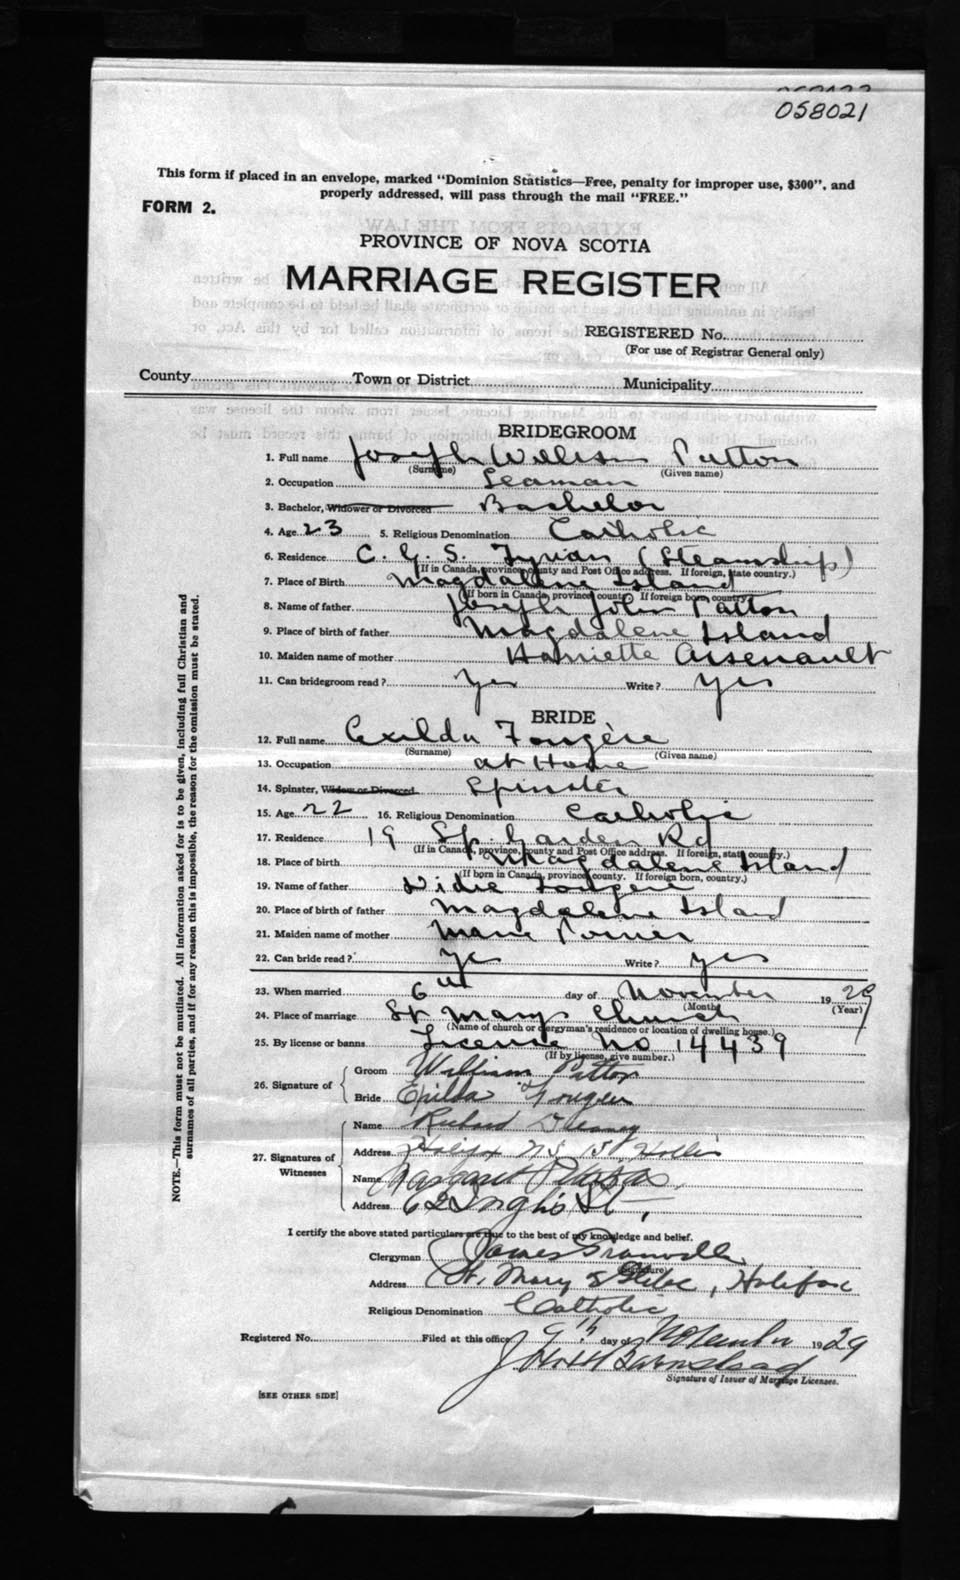 058021
This form if placed in an envelope, marked "Dominion Statistics—Free, penalty for improper use, $300", and
properly addressed, will pass through the mail "FREE."
FORM 2.
PROVINCE OF NOVA SCOTIA
MARRIAGE REGISTER
REGISTERED No.
(For use of Registrar General only)
County Town or District Municipality
BRIDEGROOM
1. Full name Joseph William Patton
(Surname) (Given name)
2. Occupation Seaman
3. Bachelor, Widower or Divorced Bachelor
4. Age 23 5. Religious Denomination Catholic
6. Residence C. G. S. (Steamship)
(If in Canada, province, county and Post Office address. If foreign, state country.)
7. Place of Birth Magdalene Island
(If born in Canada, province, county. If foreign born, country.)
8. Name of father Joseph John Patton
9. Place of birth of father Magdalene Island
10. Maiden name of mother Harriette Arsenault
11. Can bridegroom read? Yes Write? Yes
BRIDE
12. Full name Exilda Fougère
(Surname) (Given name)
13. Occupation at Home
14. Spinster, Widow or Divorced Spinster
15. Age 22 16. Religious Denomination Catholic
17. Residence 19 Sp. Garden Rd
(If in Canada, province, county and Post Office address. If foreign, state country.)
18. Place of birth Magdalene Island
(If born in Canada, province, county. If foreign born, country.)
19. Name of father Fougère
20. Place of birth of father Magdalene Island
21. Maiden name of mother Marie
22. Can bride read? Yes Write? yes
23. When married 6th day of November 1929
(Month) (Year)
24. Place of marriage St Marys Church
(Name of church or clergyman's residence or location of dwelling house.)
25. By license or banns License No 14439
(If by license, give number.)
26. Signature of Groom William Patton
Bride Exilda Fougere
27. Signatures of Witnesses Name Richard
Address Halifax N S Hollis
Name Margaret
Address 62 Inglis St,
I certify the above stated particulars are true to the best of my knowledge and belief.
Clergyman James Granville
(Signature)
Address St. Mary's Glebe, Halifax
Religious Denomination Catholic
Registered No. Filed at this office 9th day of November 1929
Signature of Issuer of Marriage Licenses.
[SEE OTHER SIDE]
NOTE.—This form must not be mutilated. All information asked for is to be given, including full Christian and
surnames of all parties, and if for any reason this is impossible, the reason for the omission must be stated.